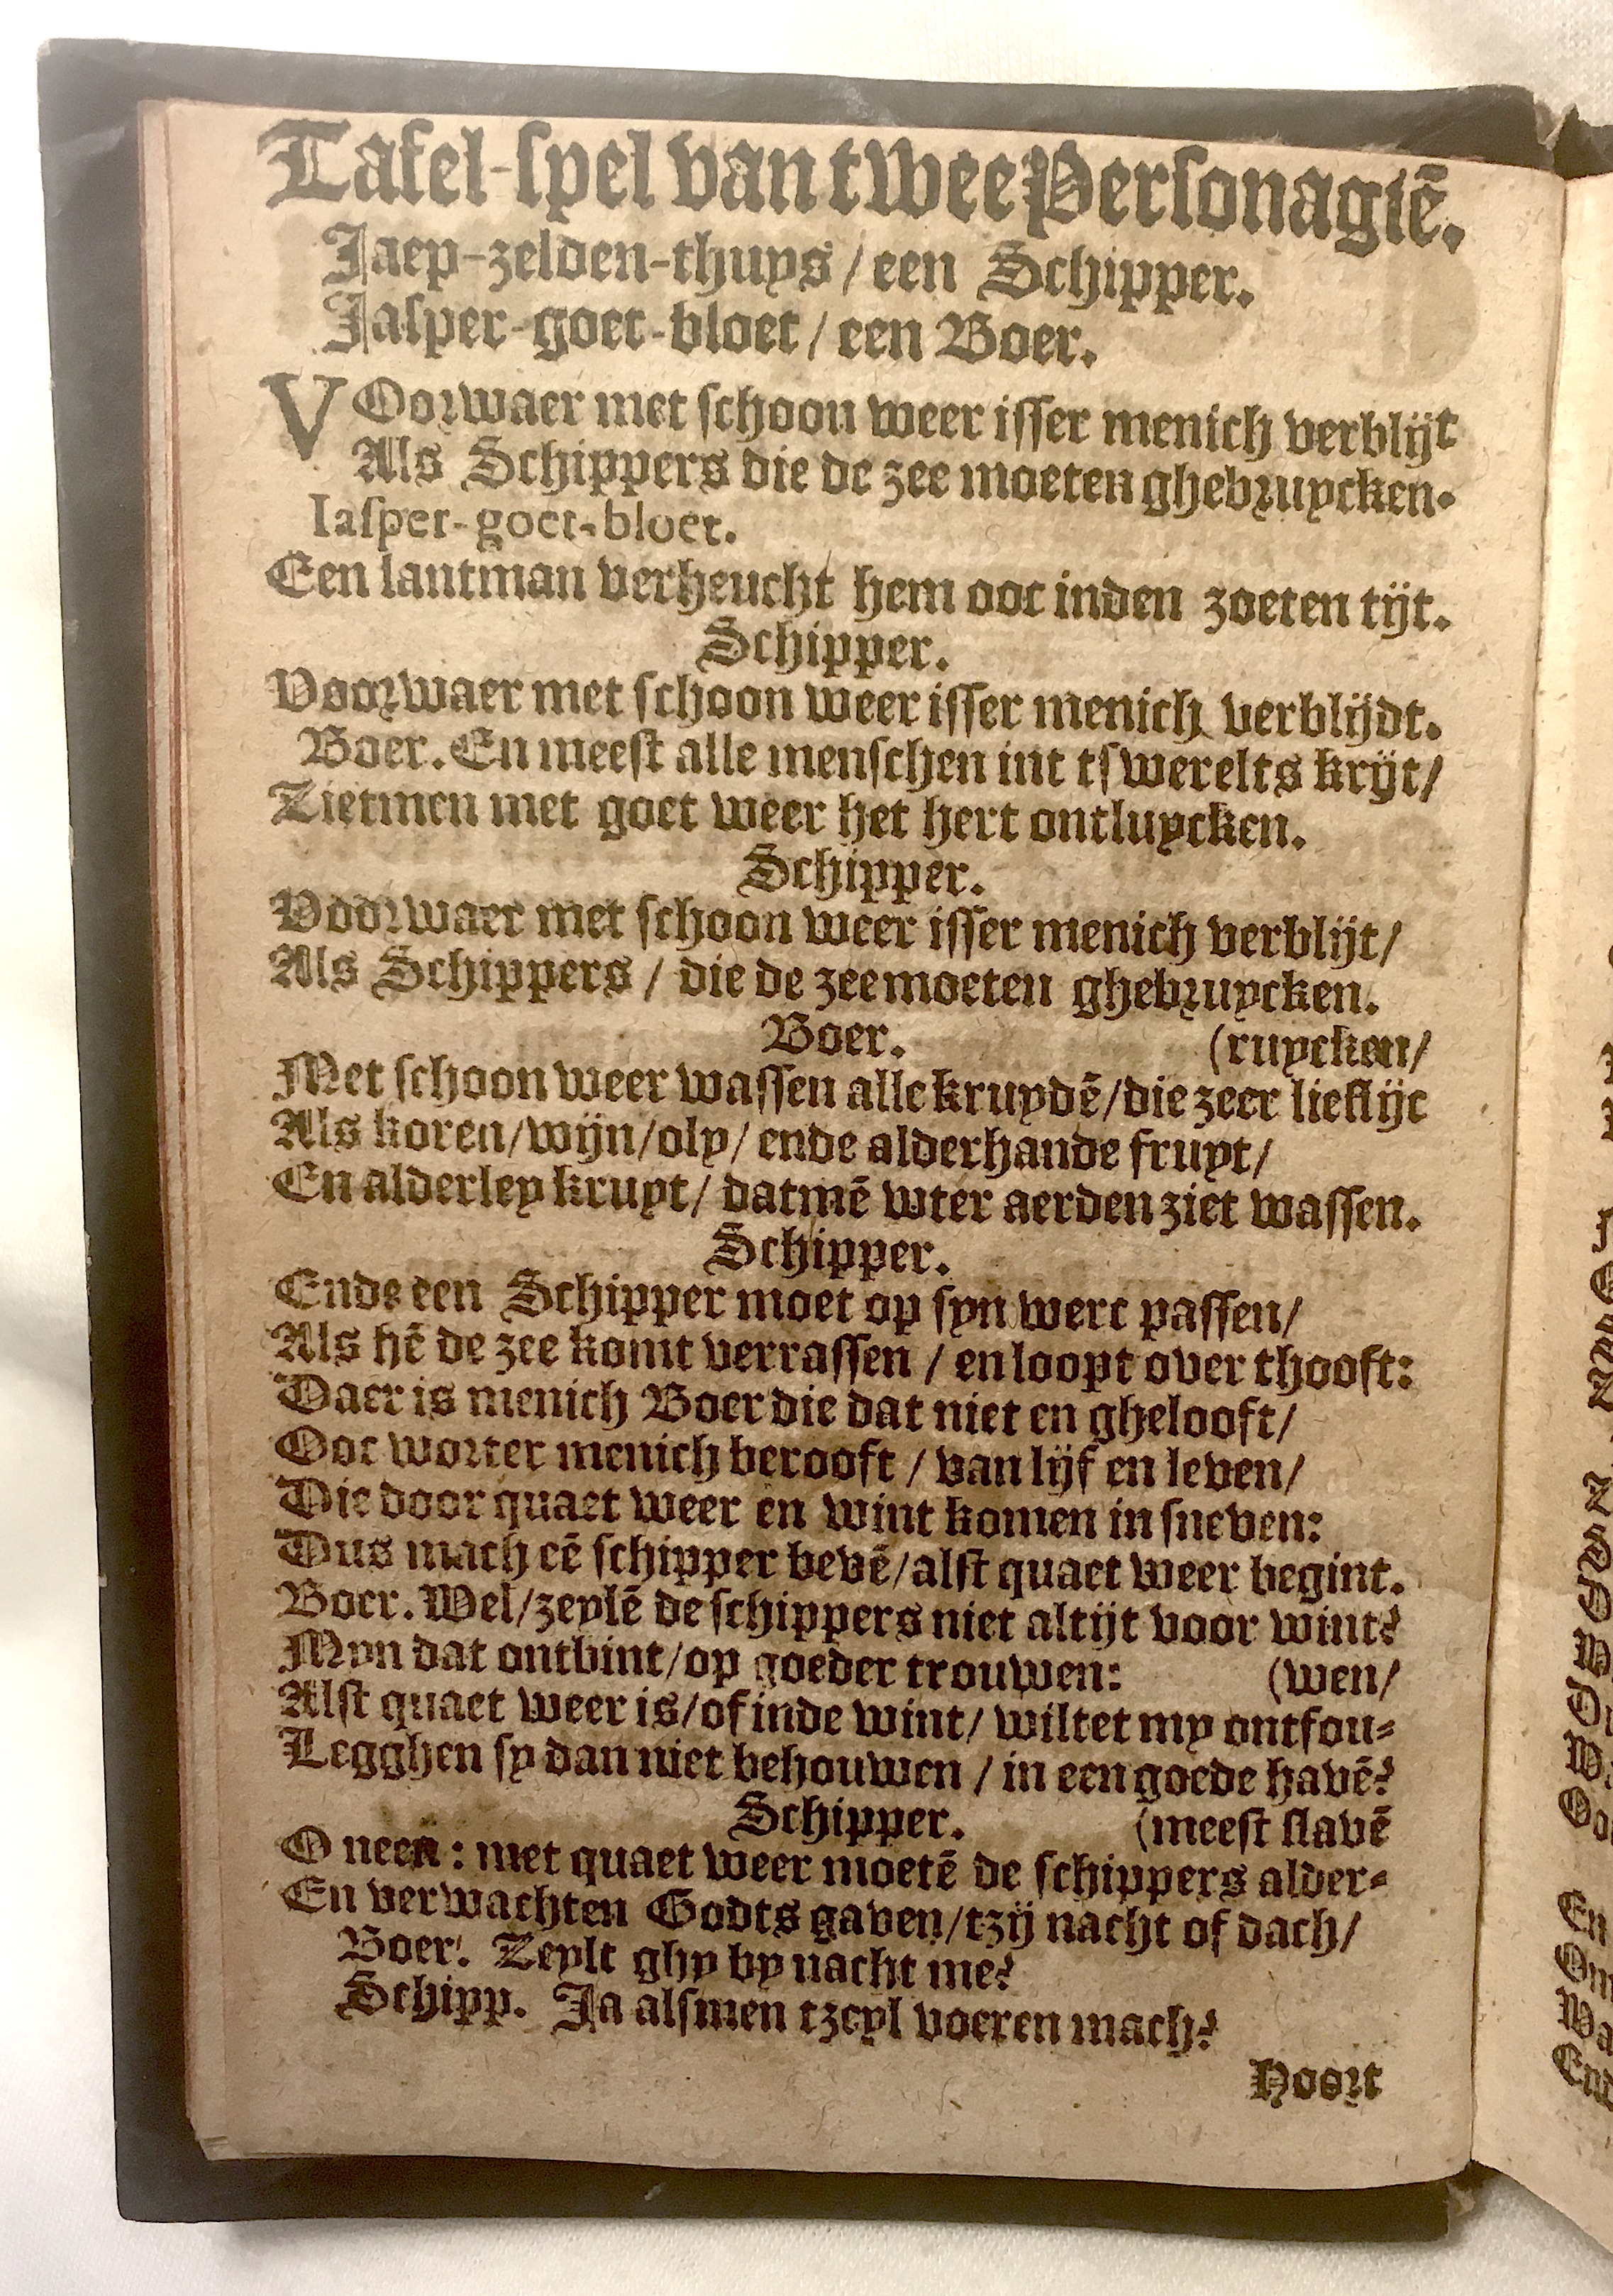 Tafel-spel van twee Personagiẽ.
Jaep-zelden-thuys / een Schipper.
Jasper-goet-bloet / een Boer.
VOorwaer met schoon weer isser menich verblijt
Als Schippers die de zee moeten ghebruycken.
Iasper-goet-bloet.
Een lantman verheucht hem ooc inden zoeten tijt.
Schipper.
Voorwaer met schoon weer isser menich verblijdt.
Boer. En meest alle menschen int tswerelts krijt/
Zietmen met goet weer het hert ontluycken.
Schipper.
Voorwaer met schoon weer isser menich verblijt/
Als Schippers / die de zee moeten ghebruycken.
Boer. (ruycken/
Met schoon weer wassen alle kruydẽ/die zeer lieflijc
Als koren/wijn/oly/ ende alderhande fruyt/
En alderley kruyt/ datmẽ wter aerden ziet wassen.
Schipper.
Ende een Schipper moet op syn werc passen/
Als hẽ de zee komt verrassen / en loopt over thooft:
Daer is menich Boer die dat niet en ghelooft/
Ooc worter menich berooft / van lijf en leven/
Die door quaet weer en wint komen in sneven:
Dus mach eẽ schipper bevẽ/alst quaet weer begint.
Boer. Wel/zeylẽ de schippers niet altijt voor wint?
Myn dat ontbint/op goeder trouwen: (wen/
Alst quaet weer is/of inde wint/ wiltet my ontfou-
Legghen sy dan niet behouwen / in een goede havẽ?
Schipper. (meest slavẽ
O neen: met quaet weer moetẽ de schippers alder-
En verwachten Godts gaven/tzij nacht of dach/
Boer. Zeylt ghy by nacht me?
Schipp. Ja alsmen tzeyl voeren mach?
Hoort